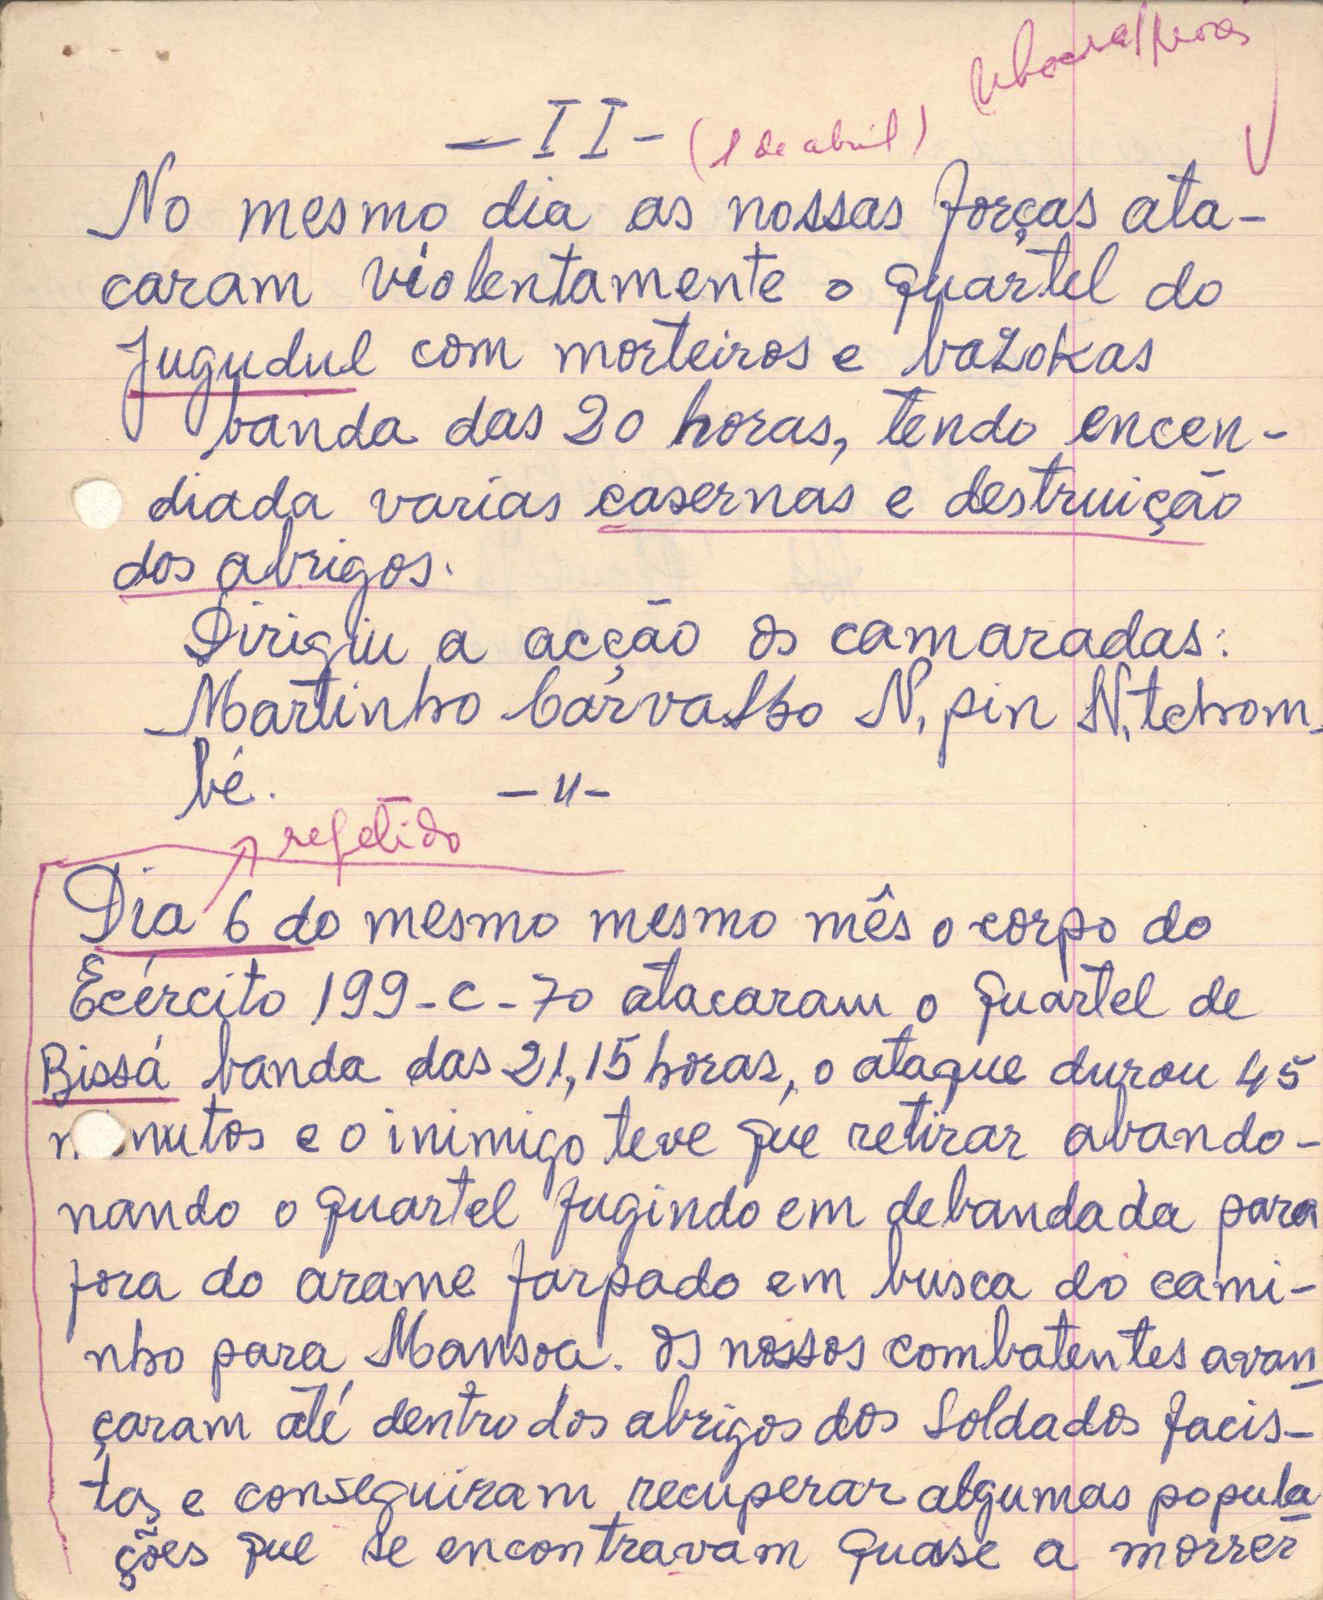 — II — (1 de abril)
No mesmo dia as nossas forças ata-
caram violentamente o quartel do
Jugudul com morteiros e bazokas
banda das 20 horas, tendo encen-
diada varias casernas e destruição
dos abrigos.
Dirigiu a acção os camaradas:
Martinho Carvalho N, pin N, tchom_
bé. — 11 —
repetido
Dia 6 do mesmo mesmo mês o corpo do
Ecército 199-C-70 atacaram o quartel de
Bissá banda das 21,15 horas, o ataque durou 45
minutos e o inimigo teve que retirar abando-
nando o quartel fugindo em debandada para
fora do arame farpado em busca do cami-
nho para Mansoa. Os nossos combatentes avan
çaram até dentro dos abrigos dos Soldados facis-
tas e conseguiram recuperar algumas popula
ções que se encontravam quase a morrer